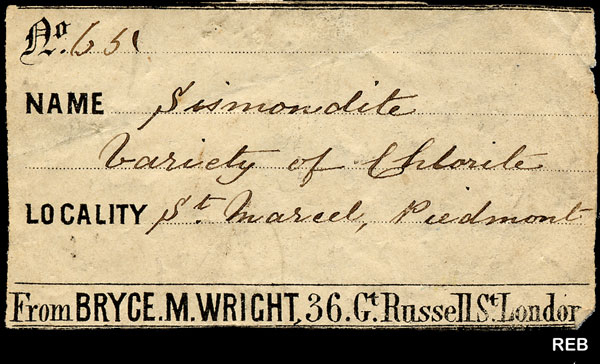 No. 651
NAME Sismondite
Variety of Chlorite
LOCALITY St. Marcel, Piedmont
From BRYCE.M.WRIGHT, 36.Gt. Russell St. London
REB